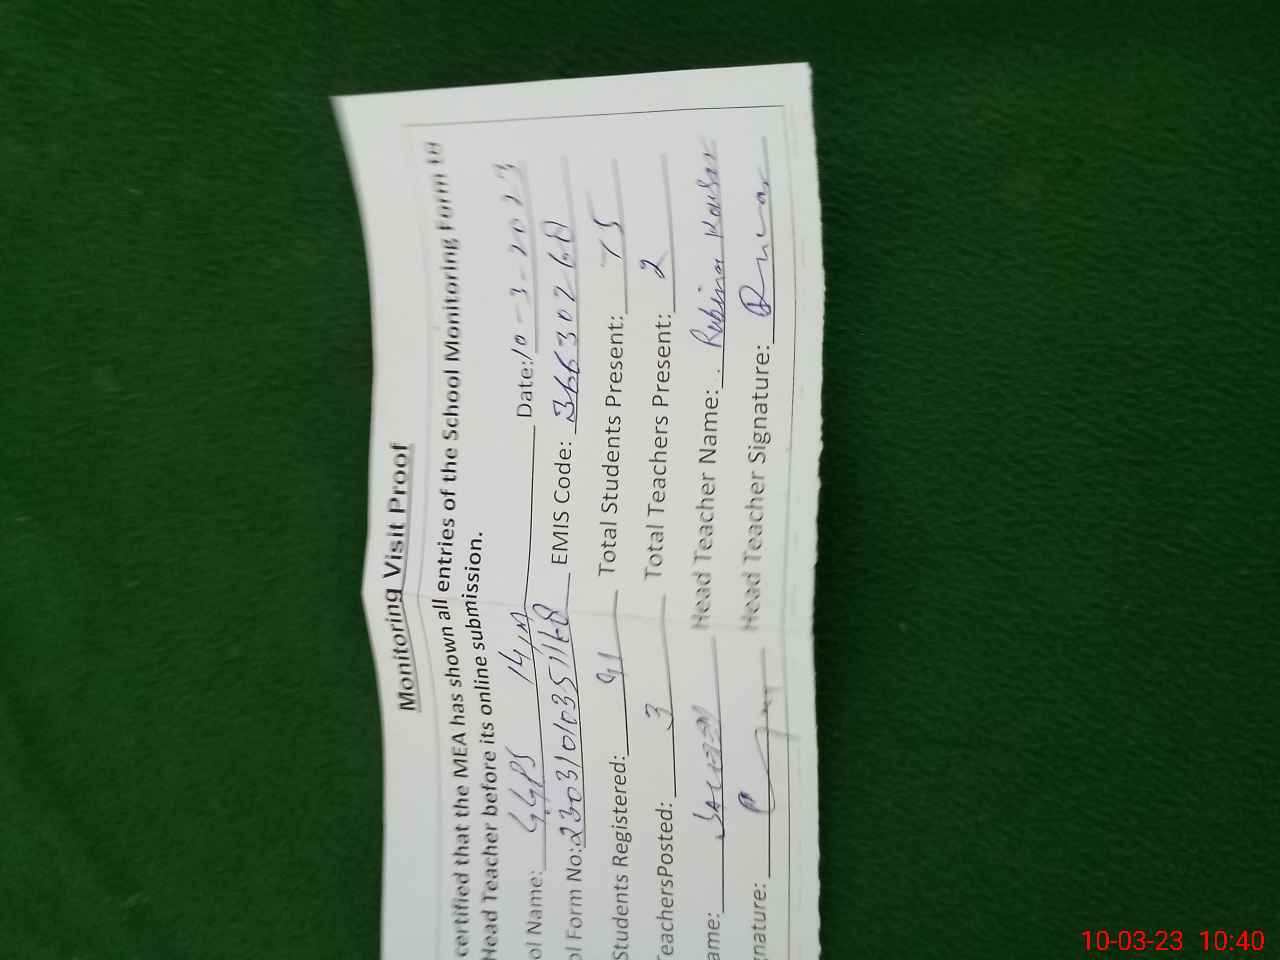 Monitoring Visit Proof
certified that the MEA has shown all entries of the School Monitoring Form to
Head Teacher before its online submission.
ol Name: GGPS 14/M Date: 10-3-2023
ol Form No: EMIS Code: 36630260
Students Registered: 91 Total Students Present: 75
TeachersPosted: 3 Total Teachers Present: 2
ame: Head Teacher Name: Rubina Kousar
gnature: Head Teacher Signature:
10-03-23 10:40